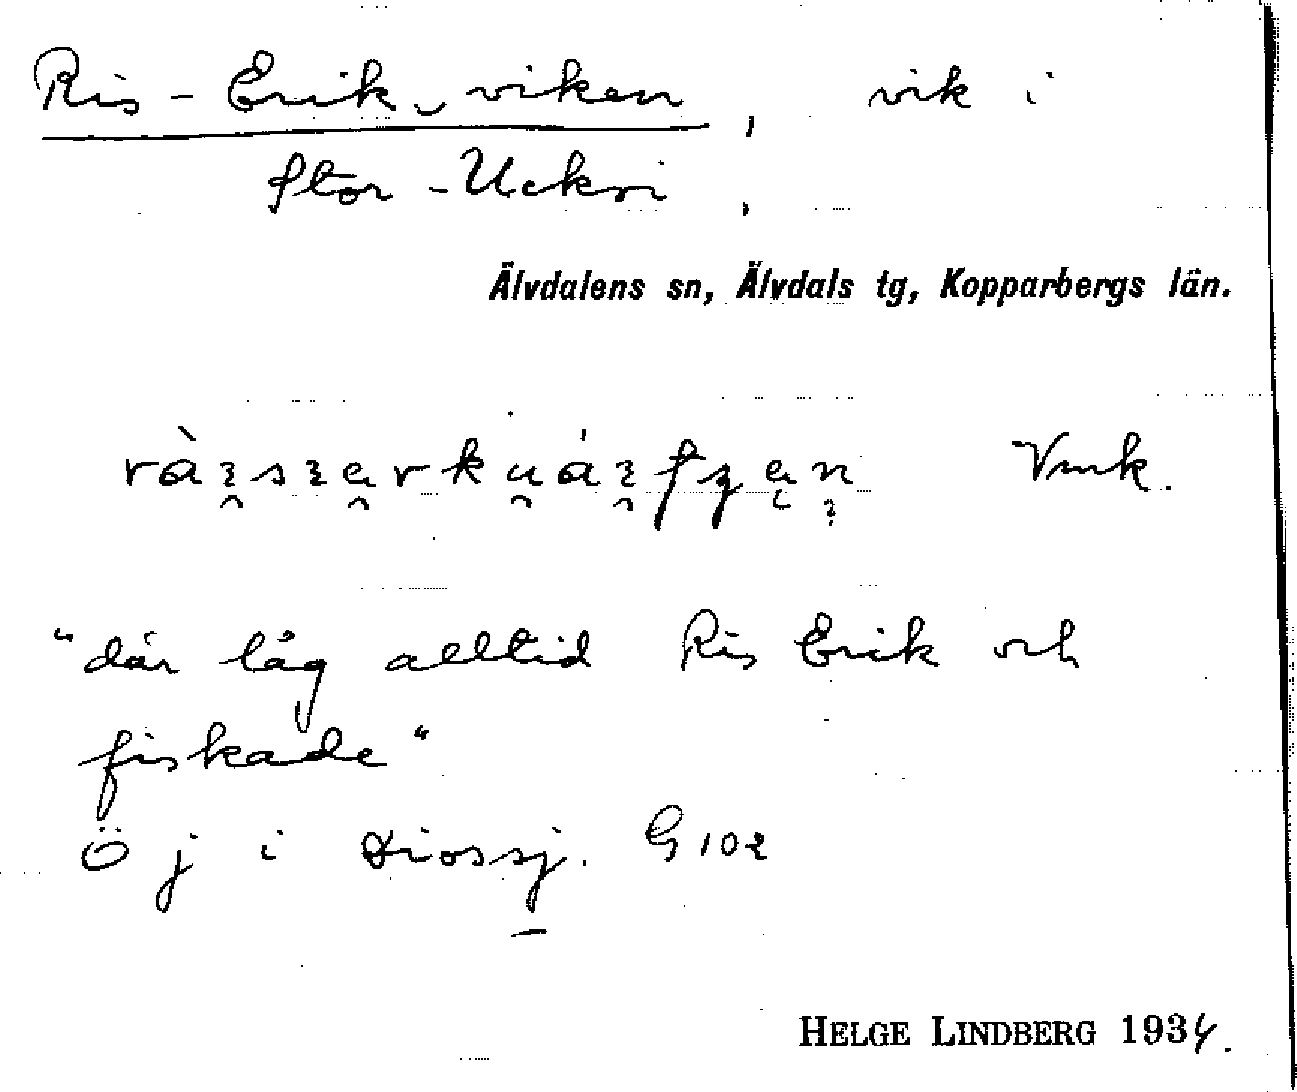 Ris-Erik, viken, vik i
Stor-Ucksi.
Älvdalens sn, Älvdals tg, Kopparbergs län.
Vmk.
"där låg alltid Ris Erik och
fiskade"
Ö j i G 102
HELGE LINDBERG 1934.